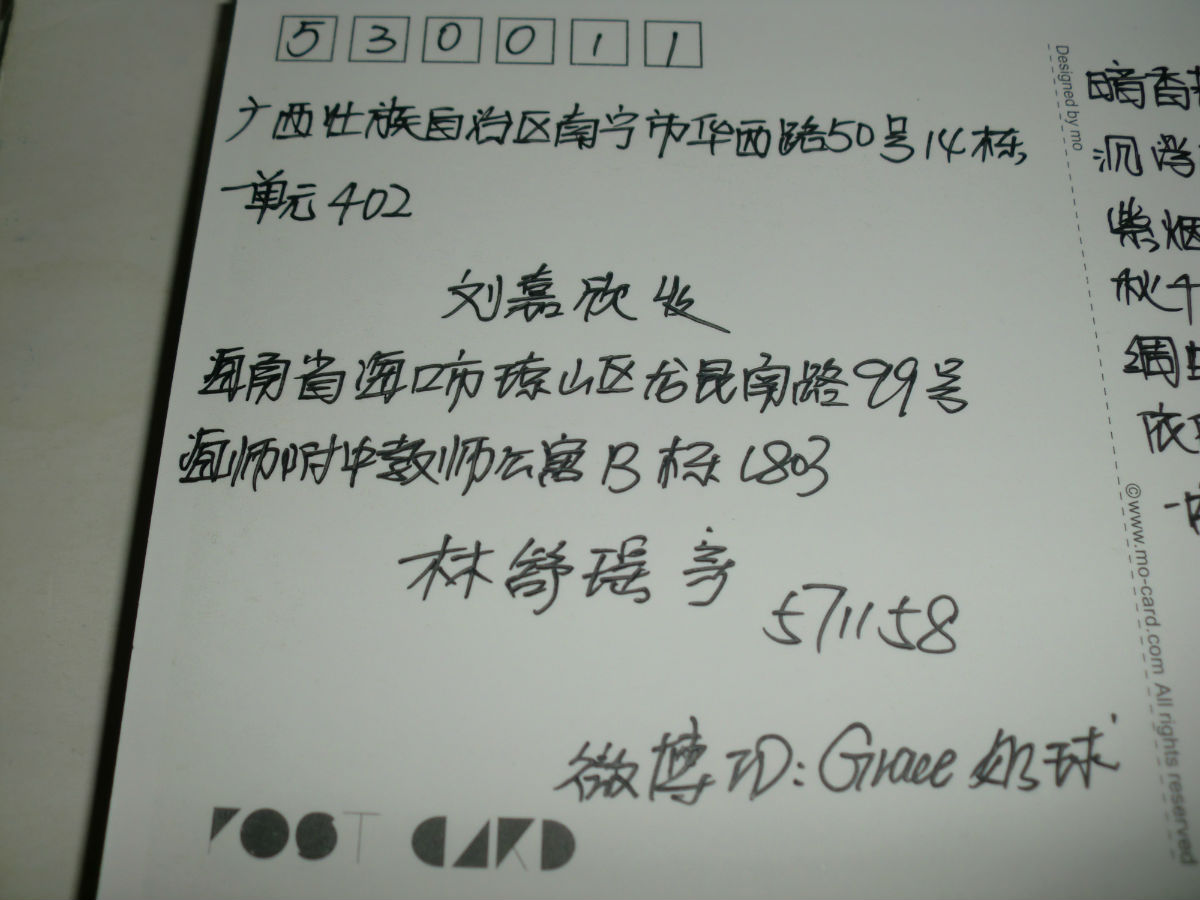 530011
广西壮族自治区南宁市华西路50号14栋
一单元402
刘嘉欣收
海南省海口市琼山区龙昆南路99号
海师附中教师公寓B栋1803
林舒瑶寄
571158
微博ID:Grace奶球
POST CARD
Designed by mo
©www.mo-card.com All rights reserved
暗香
沉浮
紫烟
秋千
调
依
一